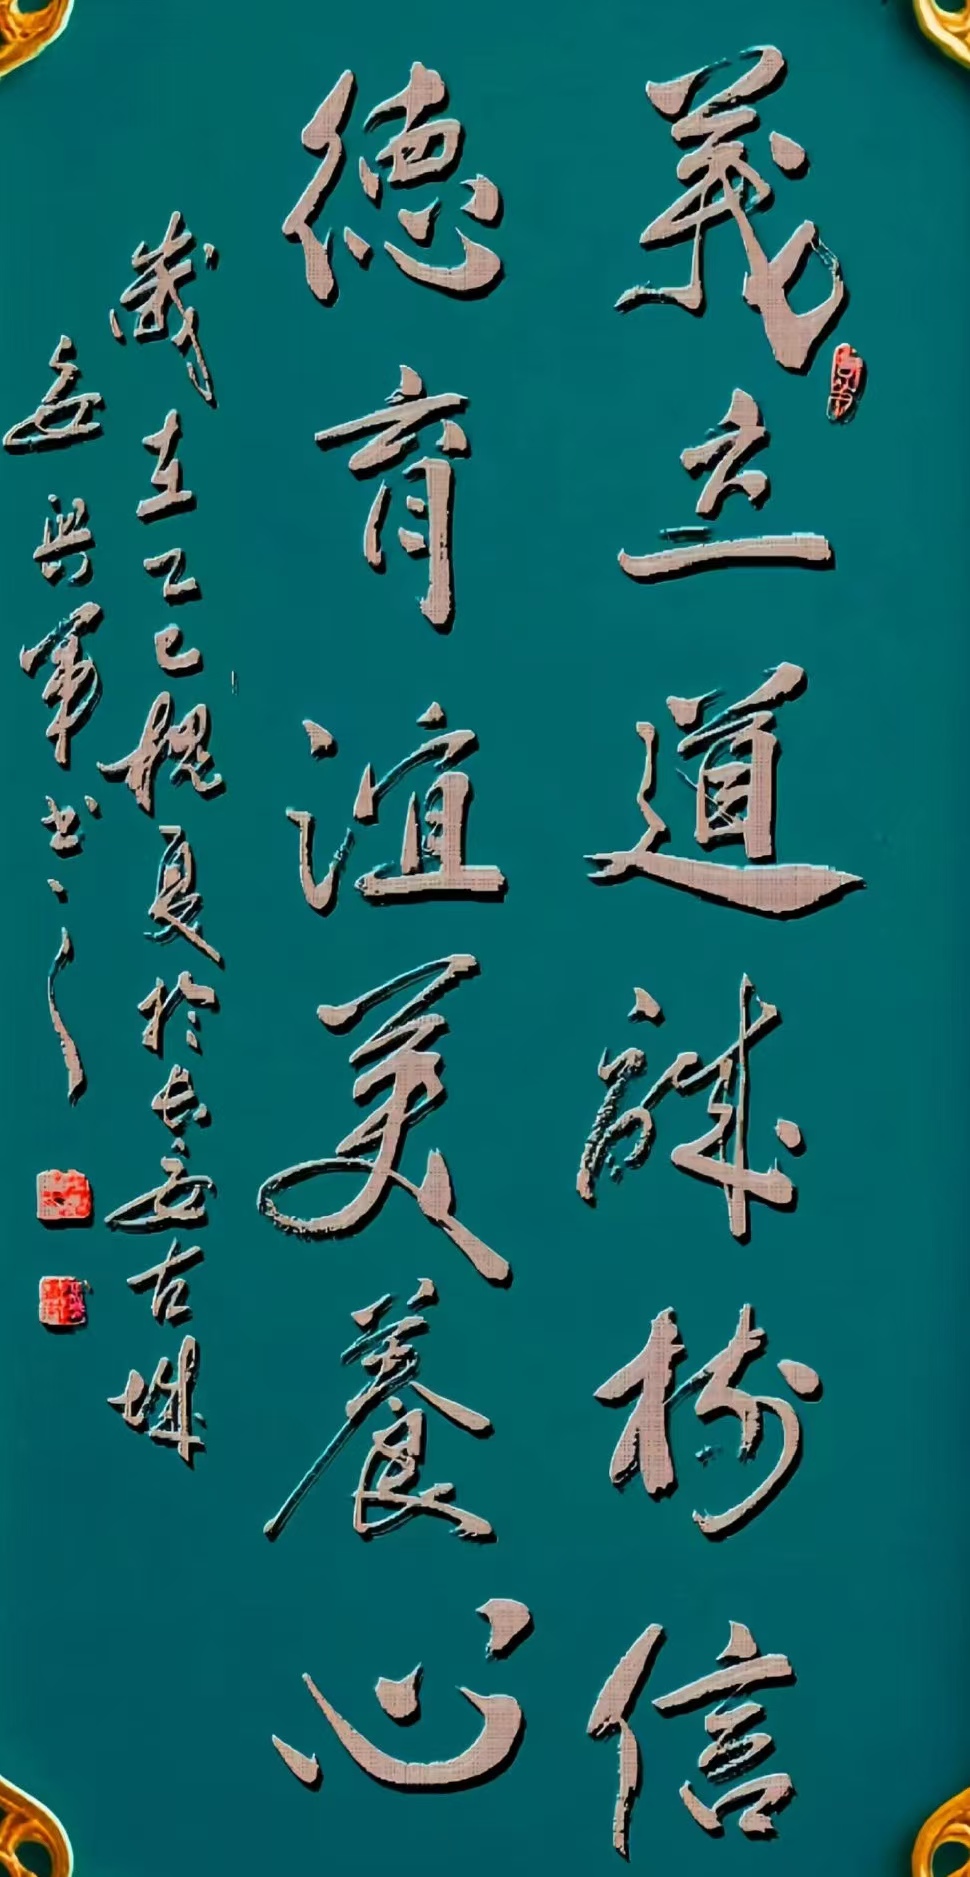 義立道誠樹信
德育誼美養心
歲在乙巳槐夏於長安古城
安興軍書之